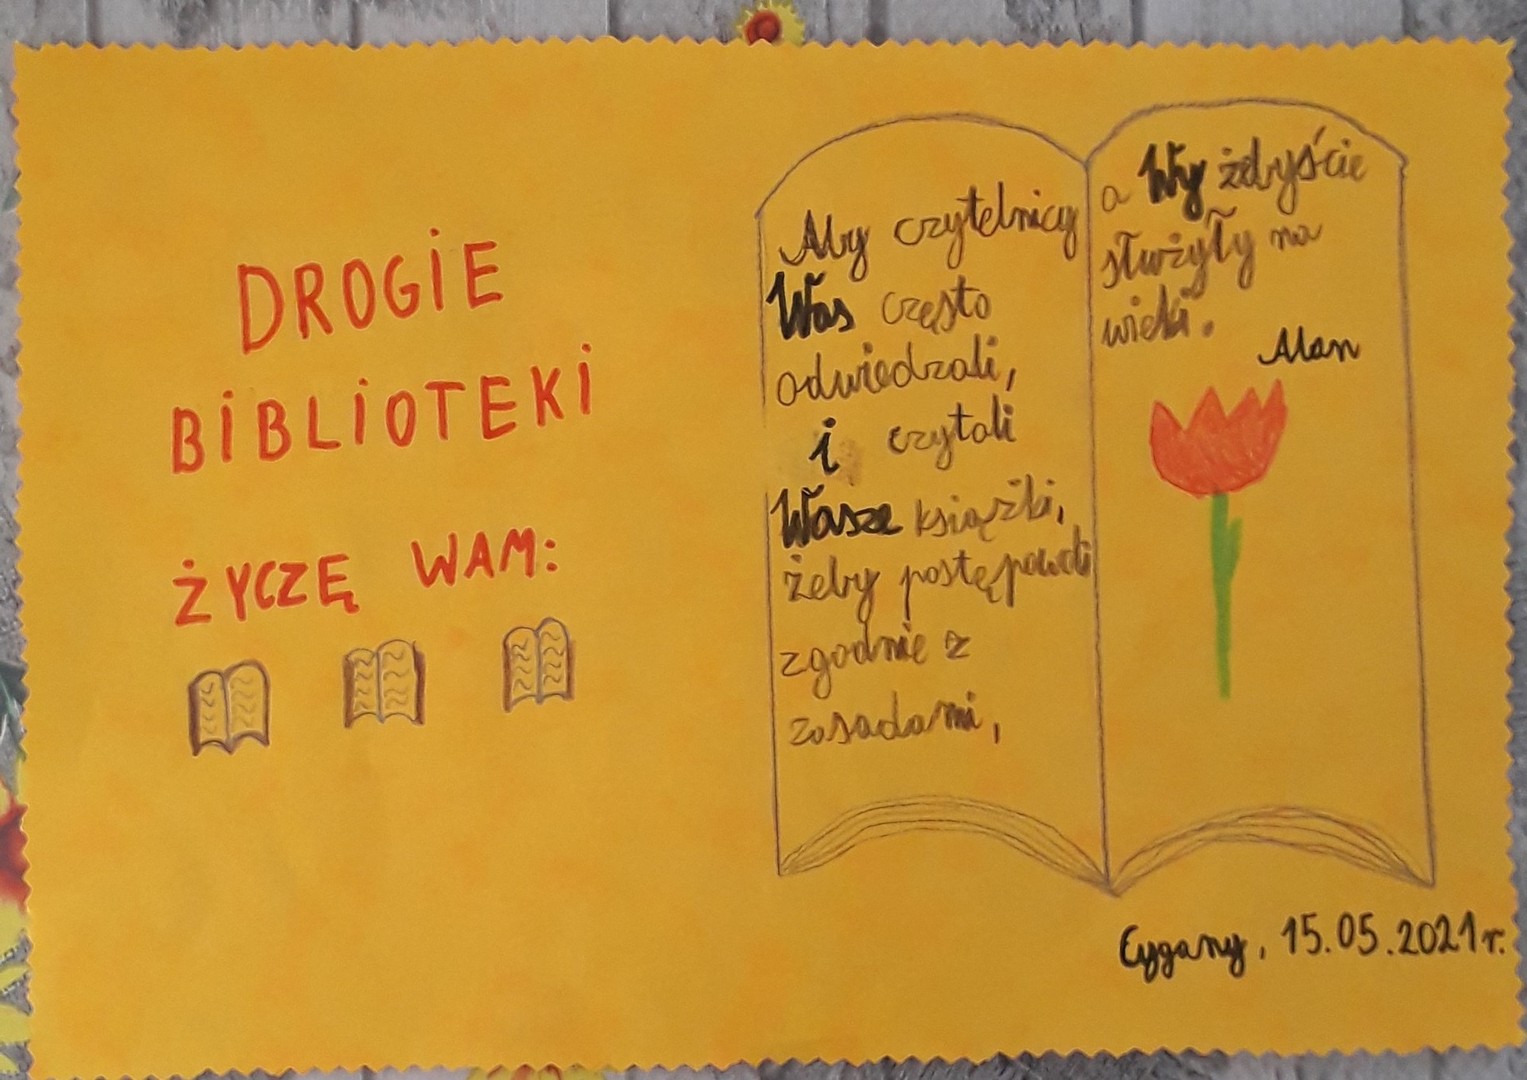 DROGIE
BIBLIOTEKI
ŻYCZĘ WAM:
Aby czytelnicy
Was często
odwiedzali,
i czytali
Wasze książki,
żeby postępowali
zgodnie z
zasadami,
a Wy żebyście
służyły na
wieki.
Alan
Cygany, 15.05.2021r.